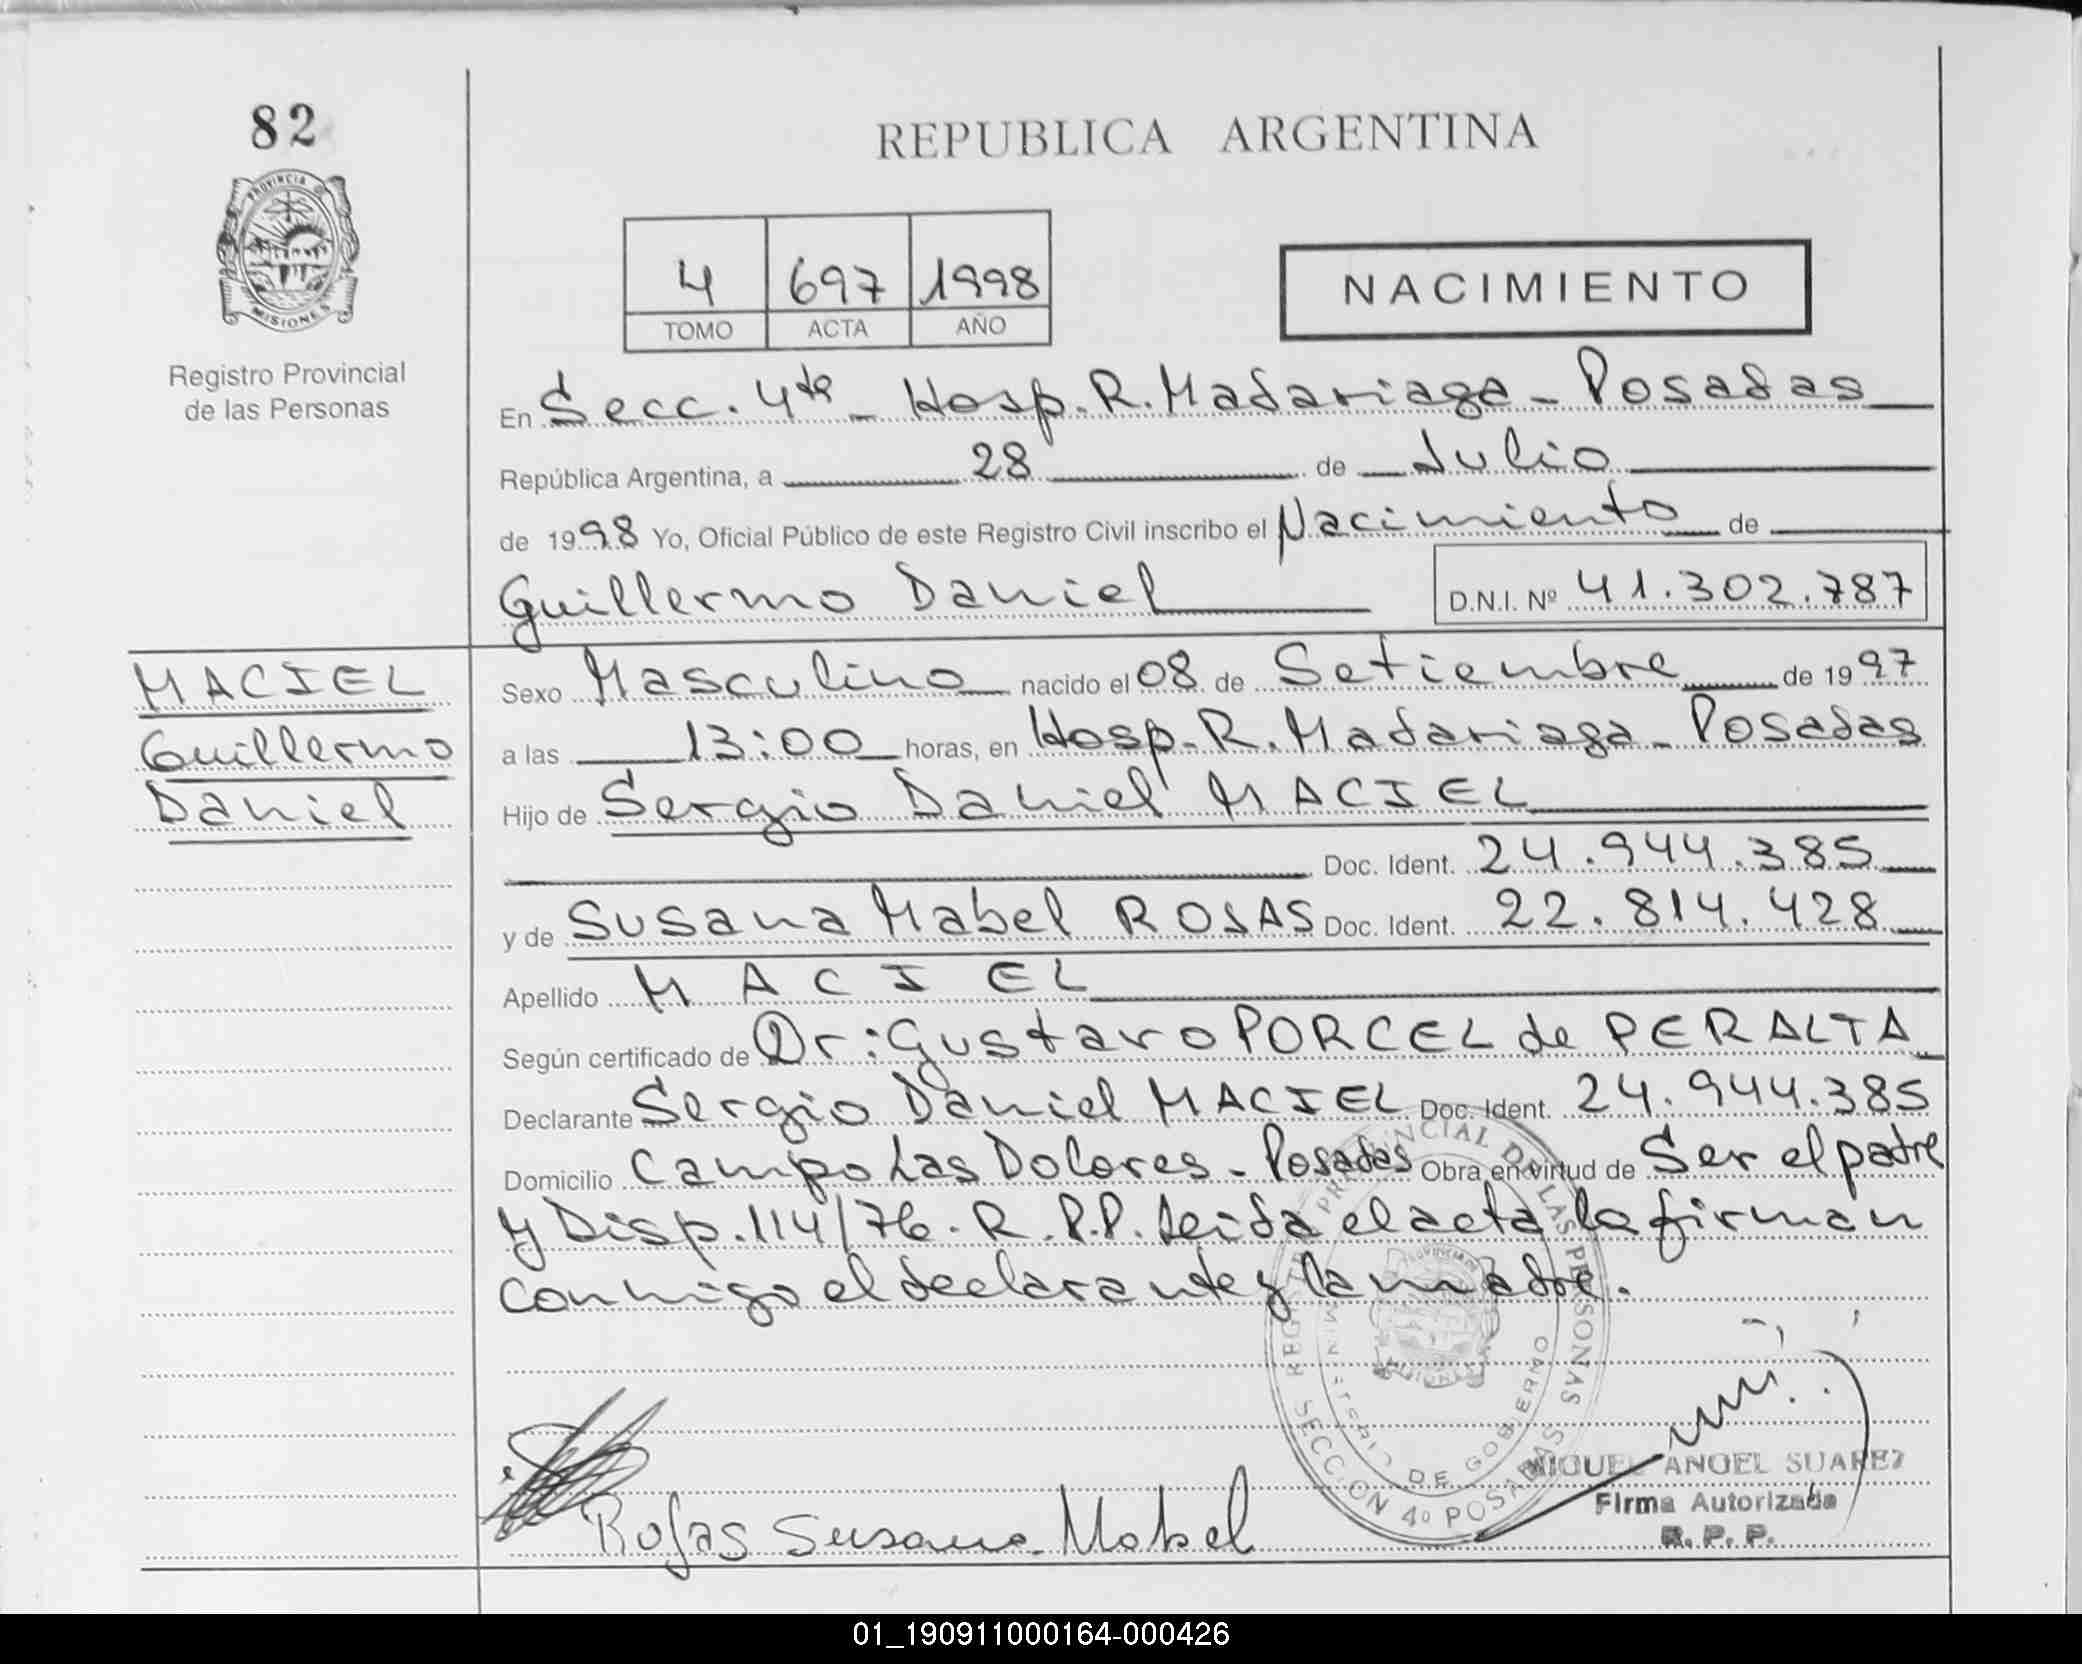 82
REPUBLICA ARGENTINA
PROVINCIA D
MISIONES
Registro Provincial
de las Personas
4 697 1998
TOMO ACTA AÑO
NACIMIENTO
En Secc. 4ta - Hosp. R. Madariaga - Posadas
República Argentina, a 28 de Julio
de 1998 Yo, Oficial Público de este Registro Civil inscribo el Nacimiento de
Guillermo Daniel D.N.I. Nº 41.302.787
MACIEL
Guillermo
Daniel
Sexo Masculino nacido el 08 de Setiembre de 1997
a las 13:00 horas, en Hosp. R. Madariaga - Posadas
Hijo de Sergio Daniel MACIEL
Doc. Ident. 24.944.385
y de Susana Mabel ROJAS Doc. Ident. 22.814.428
Apellido MACIEL
Según certificado de Dr: Gustavo PORCEL de PERALTA
Declarante Sergio Daniel MACIEL Doc. Ident. 24.944.385
Domicilio Campo Las Dolores - Posadas Obra en virtud de Ser el padre
y Disp. 114/76. R.P.P. Leida el acta la firman
conmigo el declarante y la madre.
REGISTRO PROVINCIAL DE LAS PERSONAS
MINISTERIO DE GOBIERNO
SECCION 4º POSADAS
MIGUEL ANGEL SUAREZ
Firma Autorizada
R. P. P.
Rojas Susana Mabel
01_190911000164-000426